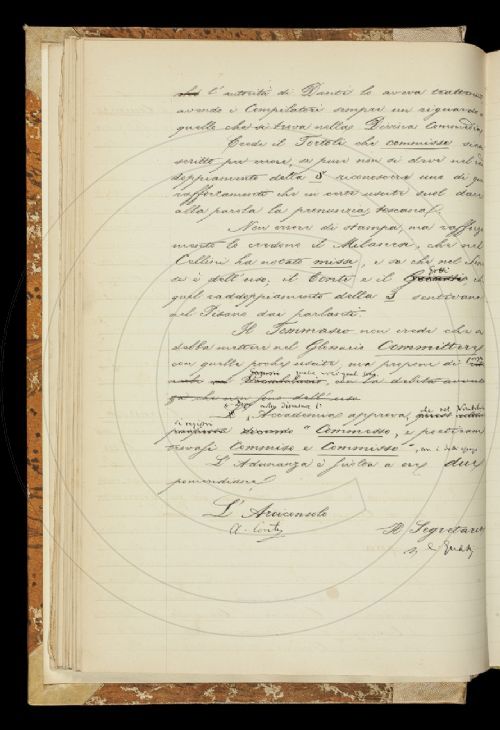 l'autorità di Dante lo aveva trattenuto
avendo i Compilatori sempre un riguardo a
quelle che si trova nella Divina Commedia
Crede il Tortoli che commisse sia
scritto per errore, se pure non si deve nel
doppiamento della S riconoscere uno di
rafforzamento che in certe uscite suol dare
alla parola la pronunzia toscana.
Non errore di stampa, ma raffor
mento lo credono il Milanesi, che nel
Cellini ha notato misse, e sa che nel
è dell'uso; il Conti e il
quel raddoppiamento della S sentivano
nel Pisano dai parlanti.
Il Tommaseo non crede che
debba mettere nel Glossario Committere
con quelle poche uscite, ma propone di
Vocabolario, con la debita
che non sono dell'uso
L'Accademia approva, che nel
si registri "Commesso, e poeticam
trovasi Commiso e Commisso"
L'Adunanza è sciolta a ore due
pomeridiane.
L'Arciconsolo
A. Conti
Il Segretario